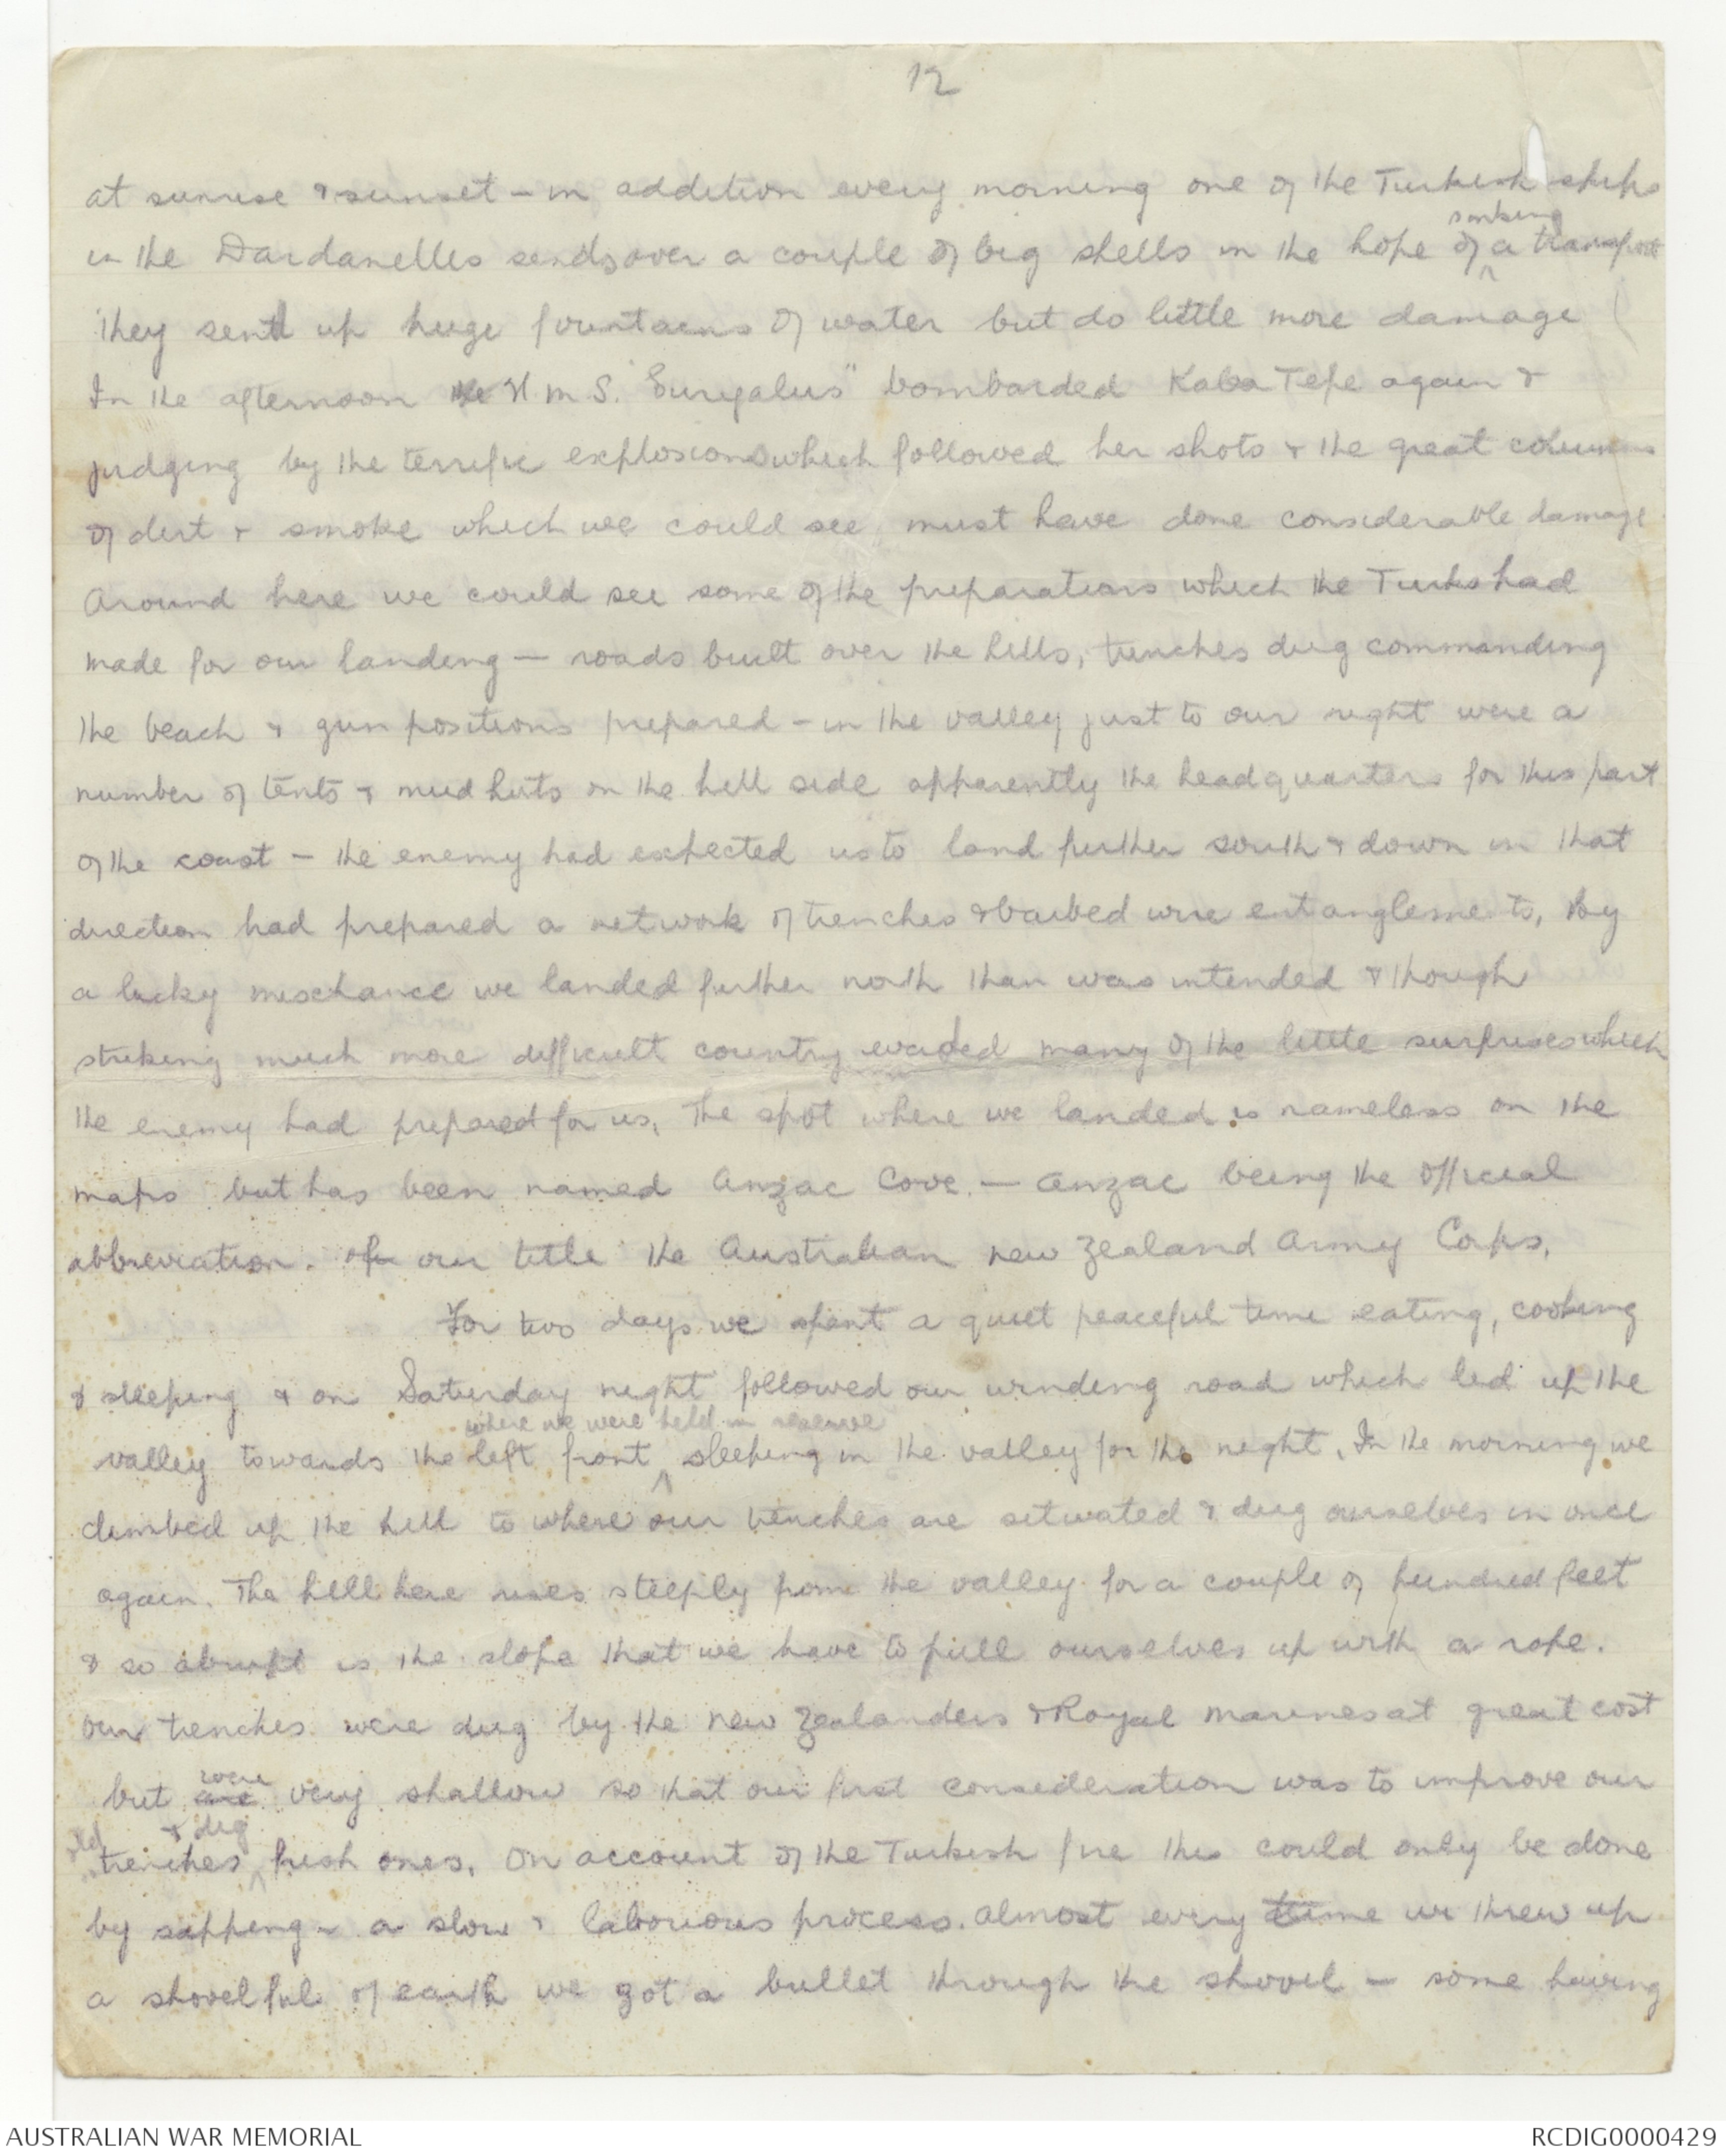 12
at sunrise & sunset – in addition every morning one of the Turkish ships
in the Dardanelles sends over a couple of big shells in the hope of sinking a transport
They send up huge fountains of water but do little more damage
In the afternoon the H.M.S. "Euryalus" bombarded Kaba Tepe again &
judging by the terrific explosions which followed her shots & the great columns
of dirt & smoke which we could see must have done considerable damage
Around here we could see some of the preparations which the Turks had
made for our landing – roads built over the hills, trenches dug commanding
the beach & gun positions prepared – in the valley just to our right were a
number of tents & mud huts on the hill side apparently the headquarters for this part
of the coast – the enemy had expected us to land further south & down in that
direction had prepared a network of trenches & barbed wire entanglements, By
a lucky mischance we landed further north than was intended & though
striking much more difficult country evaded many of the little surprises which
the enemy had prepared for us, The spot where we landed is nameless on the
maps but has been named Anzac Cove. – Anzac being the official
abbreviation. of our title the Australian New Zealand Army Corps,
For two days we spent a quiet peaceful time eating, cooking
& sleeping & on Saturday night followed our winding road which led up the
valley towards the left front where we were held in reserve sleeping in the valley for the night, In the morning we
climbed up the hill to where our trenches are situated & dug ourselves in once
again. The hill here rises steeply from the valley for a couple of hundred feet
& so abrupt is the slope that we have to pull ourselves up with a rope.
Our trenches were dug by the New Zealanders & Royal Marines at great cost
but are were very shallow so that our first consideration was to improve our
old trenches & dig fresh ones, On account of the Turkish fire this could only be done
by sapping – a slow & laborious process. Almost every time we threw up
a shovelful of earth we got a bullet through the shovel – some having
AUSTRALIAN WAR MEMORIAL
RCDIG0000429